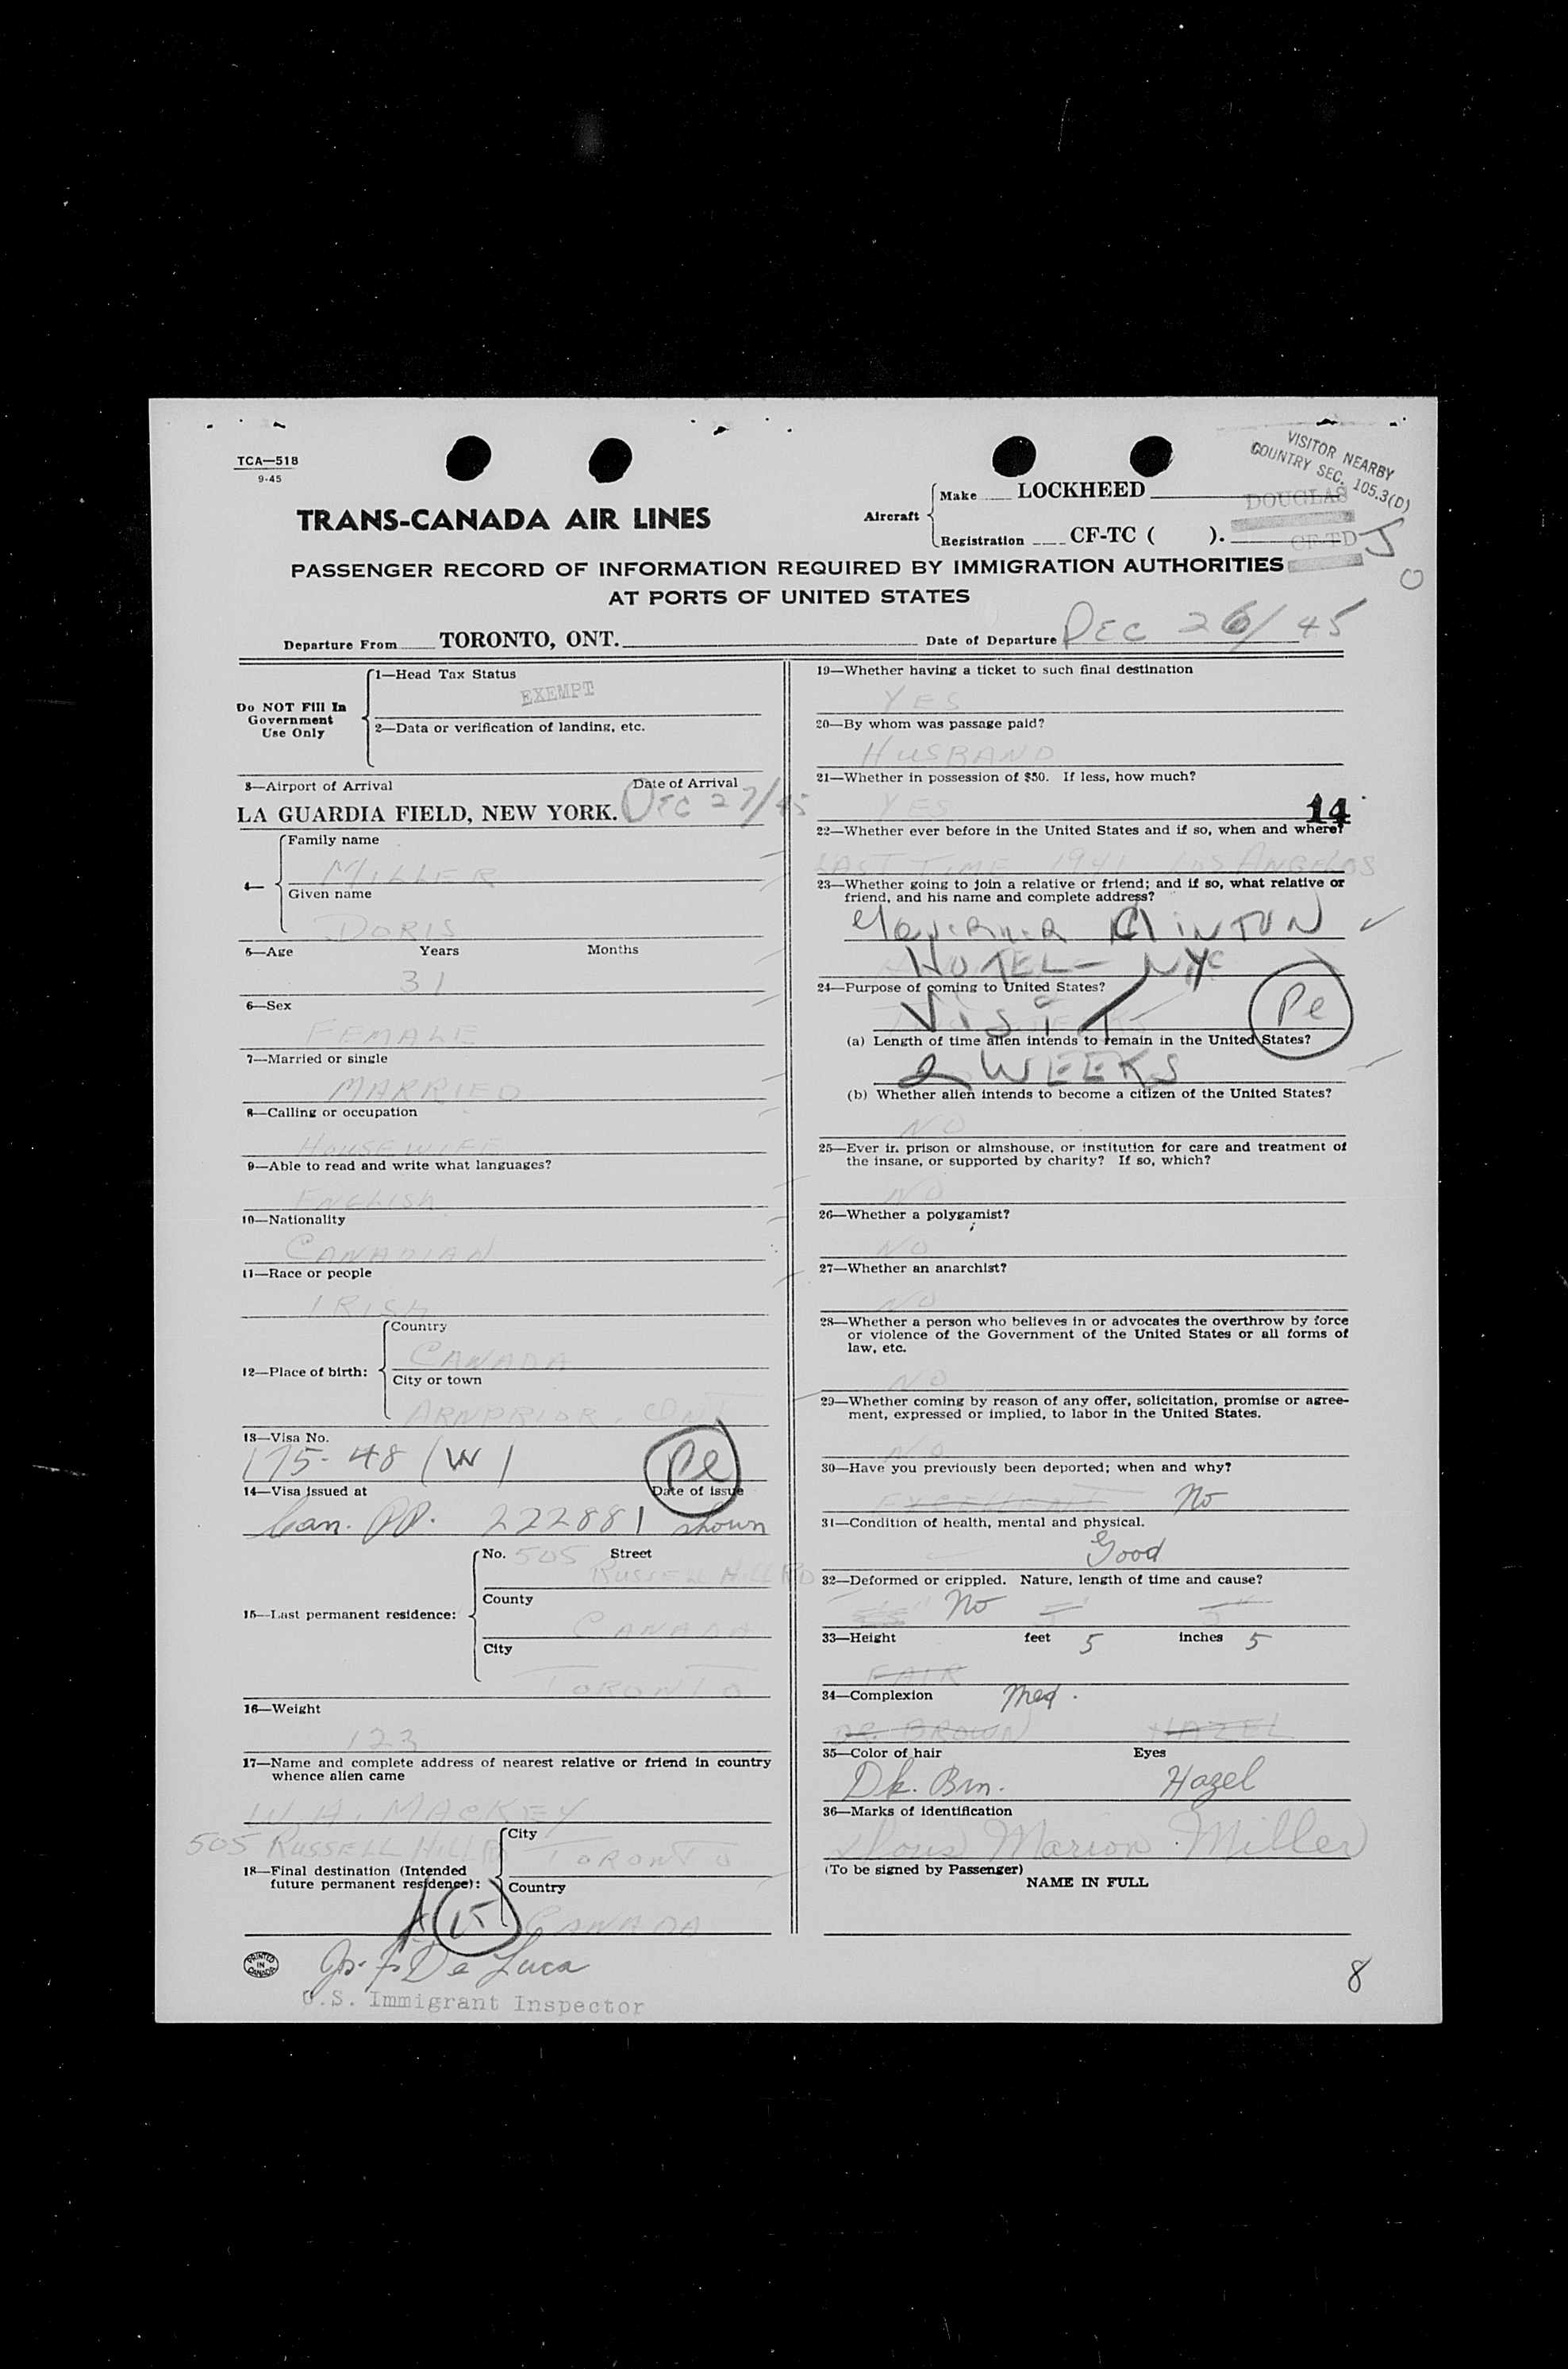 TCA—518
9-45
VISITOR NEARBY
COUNTRY SEC. 105.3(D)
TRANS-CANADA AIR LINES
Aircraft
Make LOCKHEED DOUGLAS
Registration CF-TC ( ). CF-TD J
PASSENGER RECORD OF INFORMATION REQUIRED BY IMMIGRATION AUTHORITIES
AT PORTS OF UNITED STATES
O
Departure From TORONTO, ONT. Date of Departure DEC 26/45
Do NOT Fill In
Government
Use Only
1—Head Tax Status
EXEMPT
2—Data or verification of landing, etc.
3—Airport of Arrival Date of Arrival
LA GUARDIA FIELD, NEW YORK. DEC 27/45
4—
Family name
MILLER
Given name
DORIS
5—Age Years Months
31
6—Sex
FEMALE
7—Married or single
MARRIED
8—Calling or occupation
HOUSEWIFE
9—Able to read and write what languages?
ENGLISH
10—Nationality
CANADIAN
11—Race or people
IRISH
12—Place of birth:
Country
CANADA
City or town
ARNPRIOR, ONT
13—Visa No.
175-48 (W) Pe
14—Visa issued at Date of issue
Can. PP. 222881 shown
15—Last permanent residence:
No. 505 Street
RUSSELL HILL RD
County
CANADA
City
TORONTO
16—Weight
123
17—Name and complete address of nearest relative or friend in country
whence alien came
W. H. MACKEY
505 RUSSELL HILL
18—Final destination (Intended
future permanent residence):
City
TORONTO
Country
CANADA
15
De Luca
U.S. Immigrant Inspector
PRINTED
IN
CANADA
19—Whether having a ticket to such final destination
YES
20—By whom was passage paid?
HUSBAND
21—Whether in possession of $50. If less, how much?
YES
14
22—Whether ever before in the United States and if so, when and where?
LAST TIME 1941 LOS ANGELOS
23—Whether going to join a relative or friend; and if so, what relative or
friend, and his name and complete address?
GOVERNOR CLINTON
HOTEL— NYC
24—Purpose of coming to United States?
VISIT Pe
(a) Length of time alien intends to remain in the United States?
2 WEEKS
(b) Whether alien intends to become a citizen of the United States?
NO
25—Ever in prison or almshouse, or institution for care and treatment of
the insane, or supported by charity? If so, which?
NO
26—Whether a polygamist?
NO
27—Whether an anarchist?
NO
28—Whether a person who believes in or advocates the overthrow by force
or violence of the Government of the United States or all forms of
law, etc.
NO
29—Whether coming by reason of any offer, solicitation, promise or agree-
ment, expressed or implied, to labor in the United States.
NO
30—Have you previously been deported; when and why?
EXCELLENT No
31—Condition of health, mental and physical.
Good
32—Deformed or crippled. Nature, length of time and cause?
No
33—Height feet 5 inches 5
FAIR
34—Complexion Med.
DR. BROWN HAZEL
35—Color of hair Eyes
Dk. Brn. Hazel
36—Marks of identification
Doris Marion Miller
(To be signed by Passenger)
NAME IN FULL
8